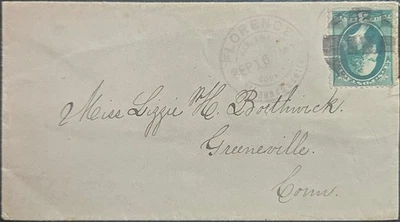 FLORENCE
SEP 16
Miss Lizzie H. Borthwick.
Greeneville.
Conn.